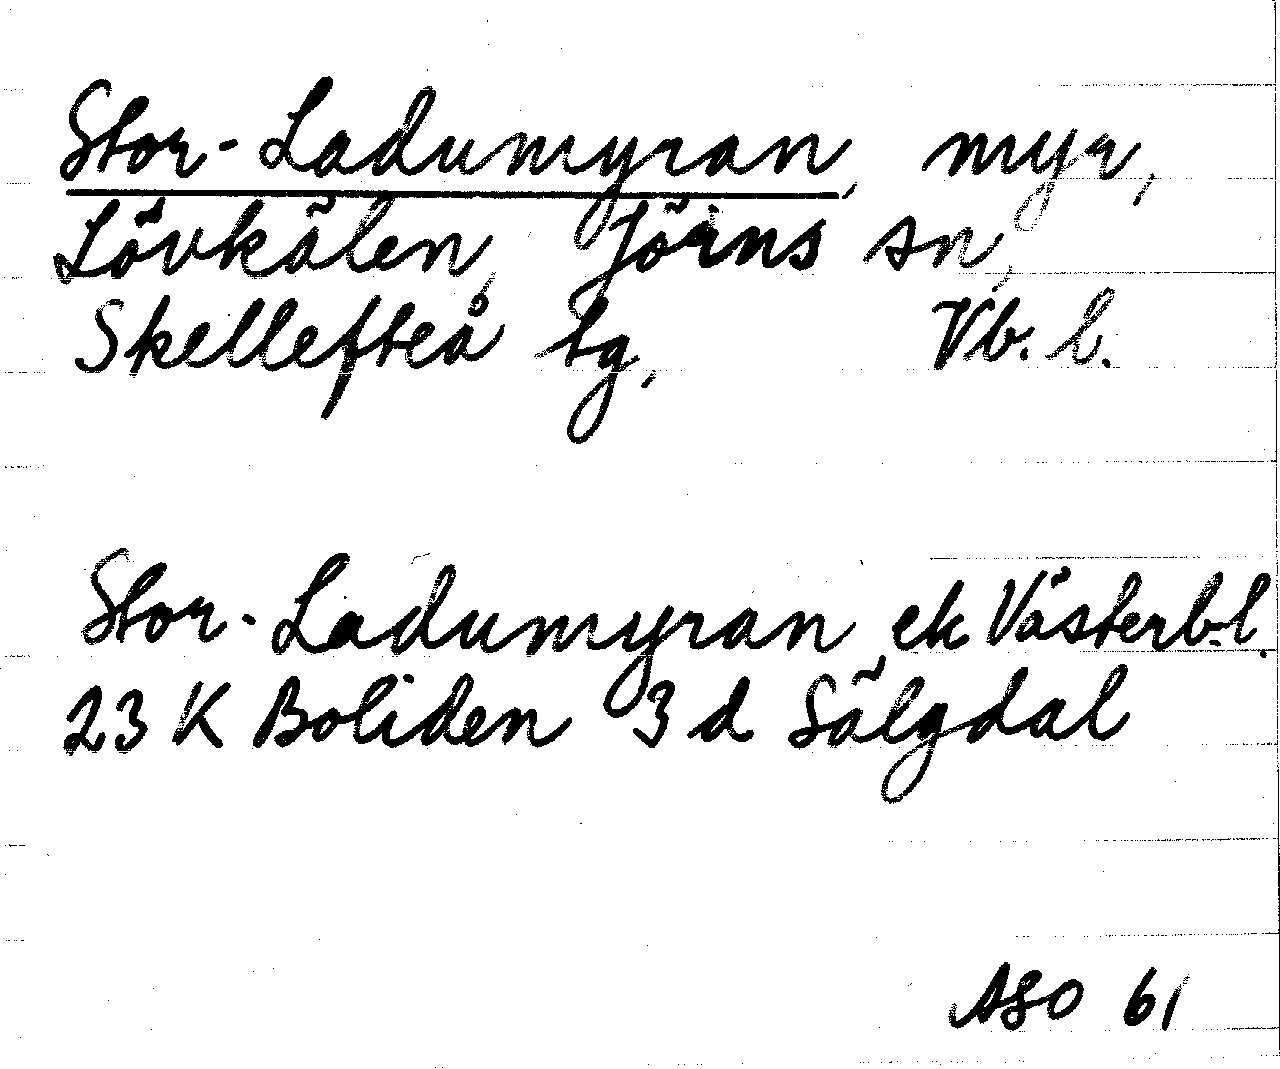 Stor-Ladumyran, myr,
Lövkälen, Jörns sn,
Skellefteå tg, Vb. l.
Stor-Ladumyran, ek Västerb.l.
23 K Boliden 3 d Sälgdal
ASO 61